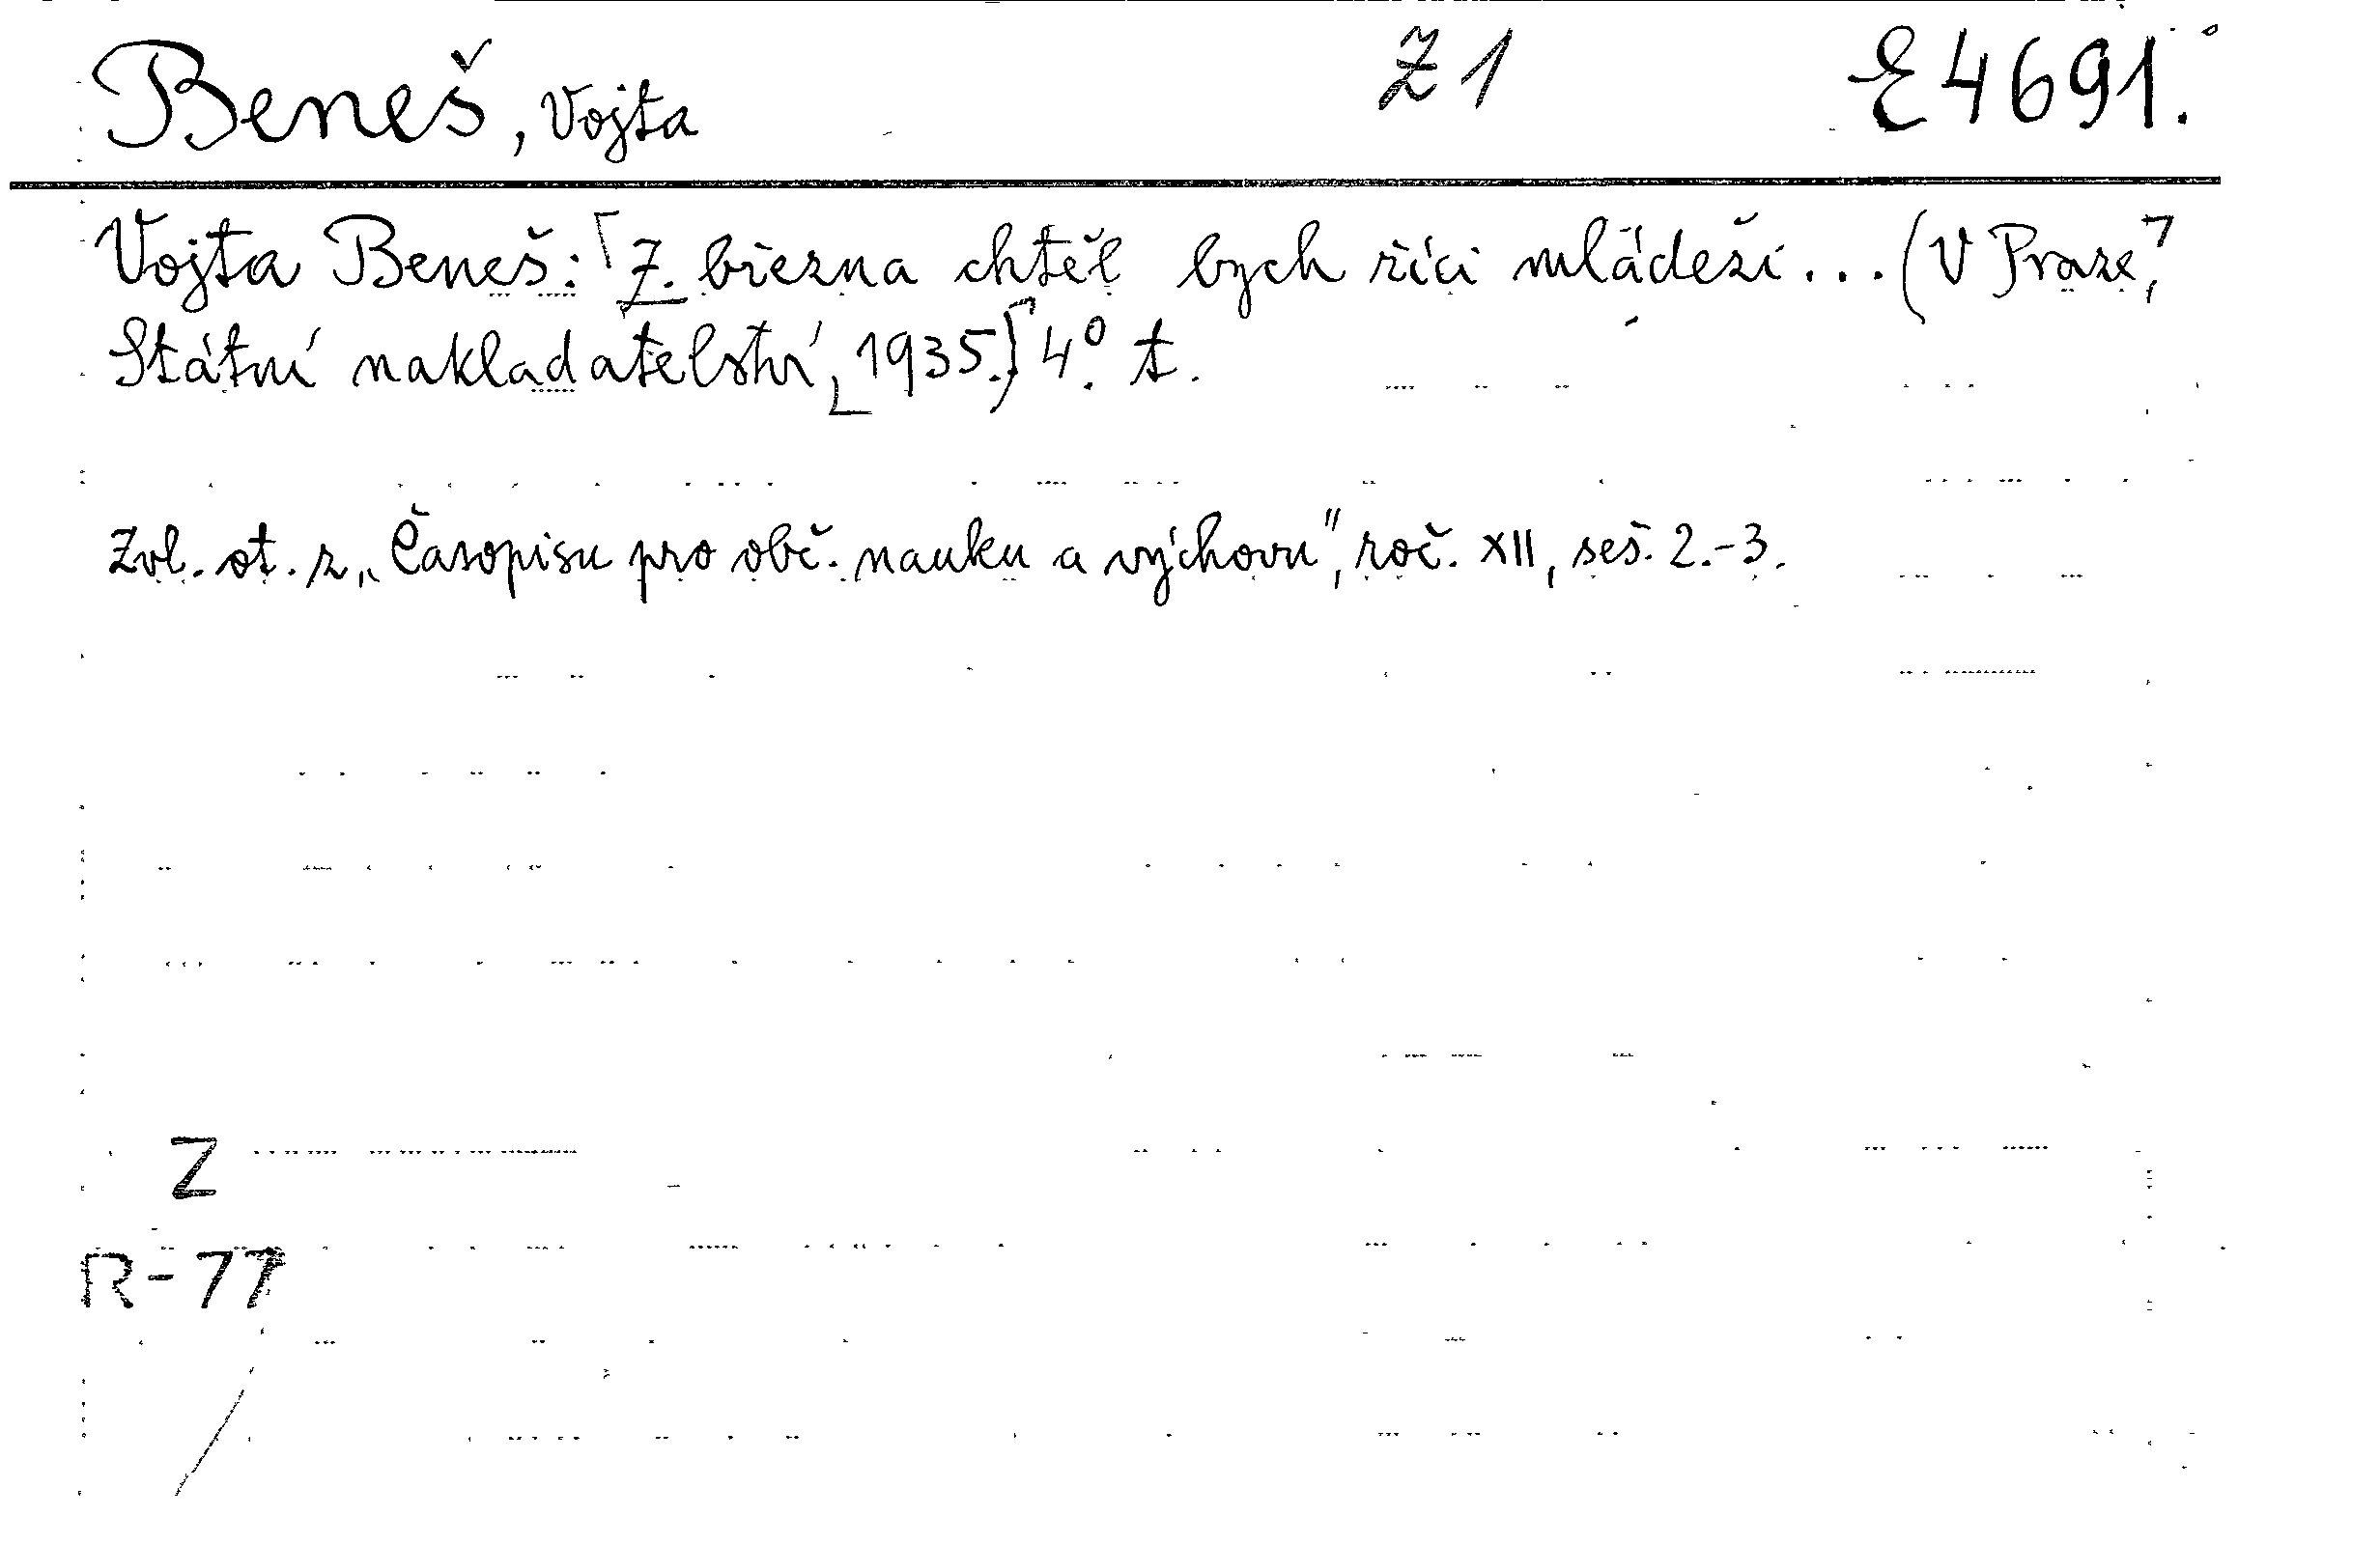 Beneš, Vojta Z1 E4691.
Vojta Beneš: ⌈7. března chtěl bych říci mládeži...(V Praze,⌉
Státní nakladatelství, ⌊1935.)⌉ 4.⁰ t.
Zvl. ot. z „Časopisu pro obč. nauku a výchovu", roč. XII, seš. 2.-3.
Z
R-77